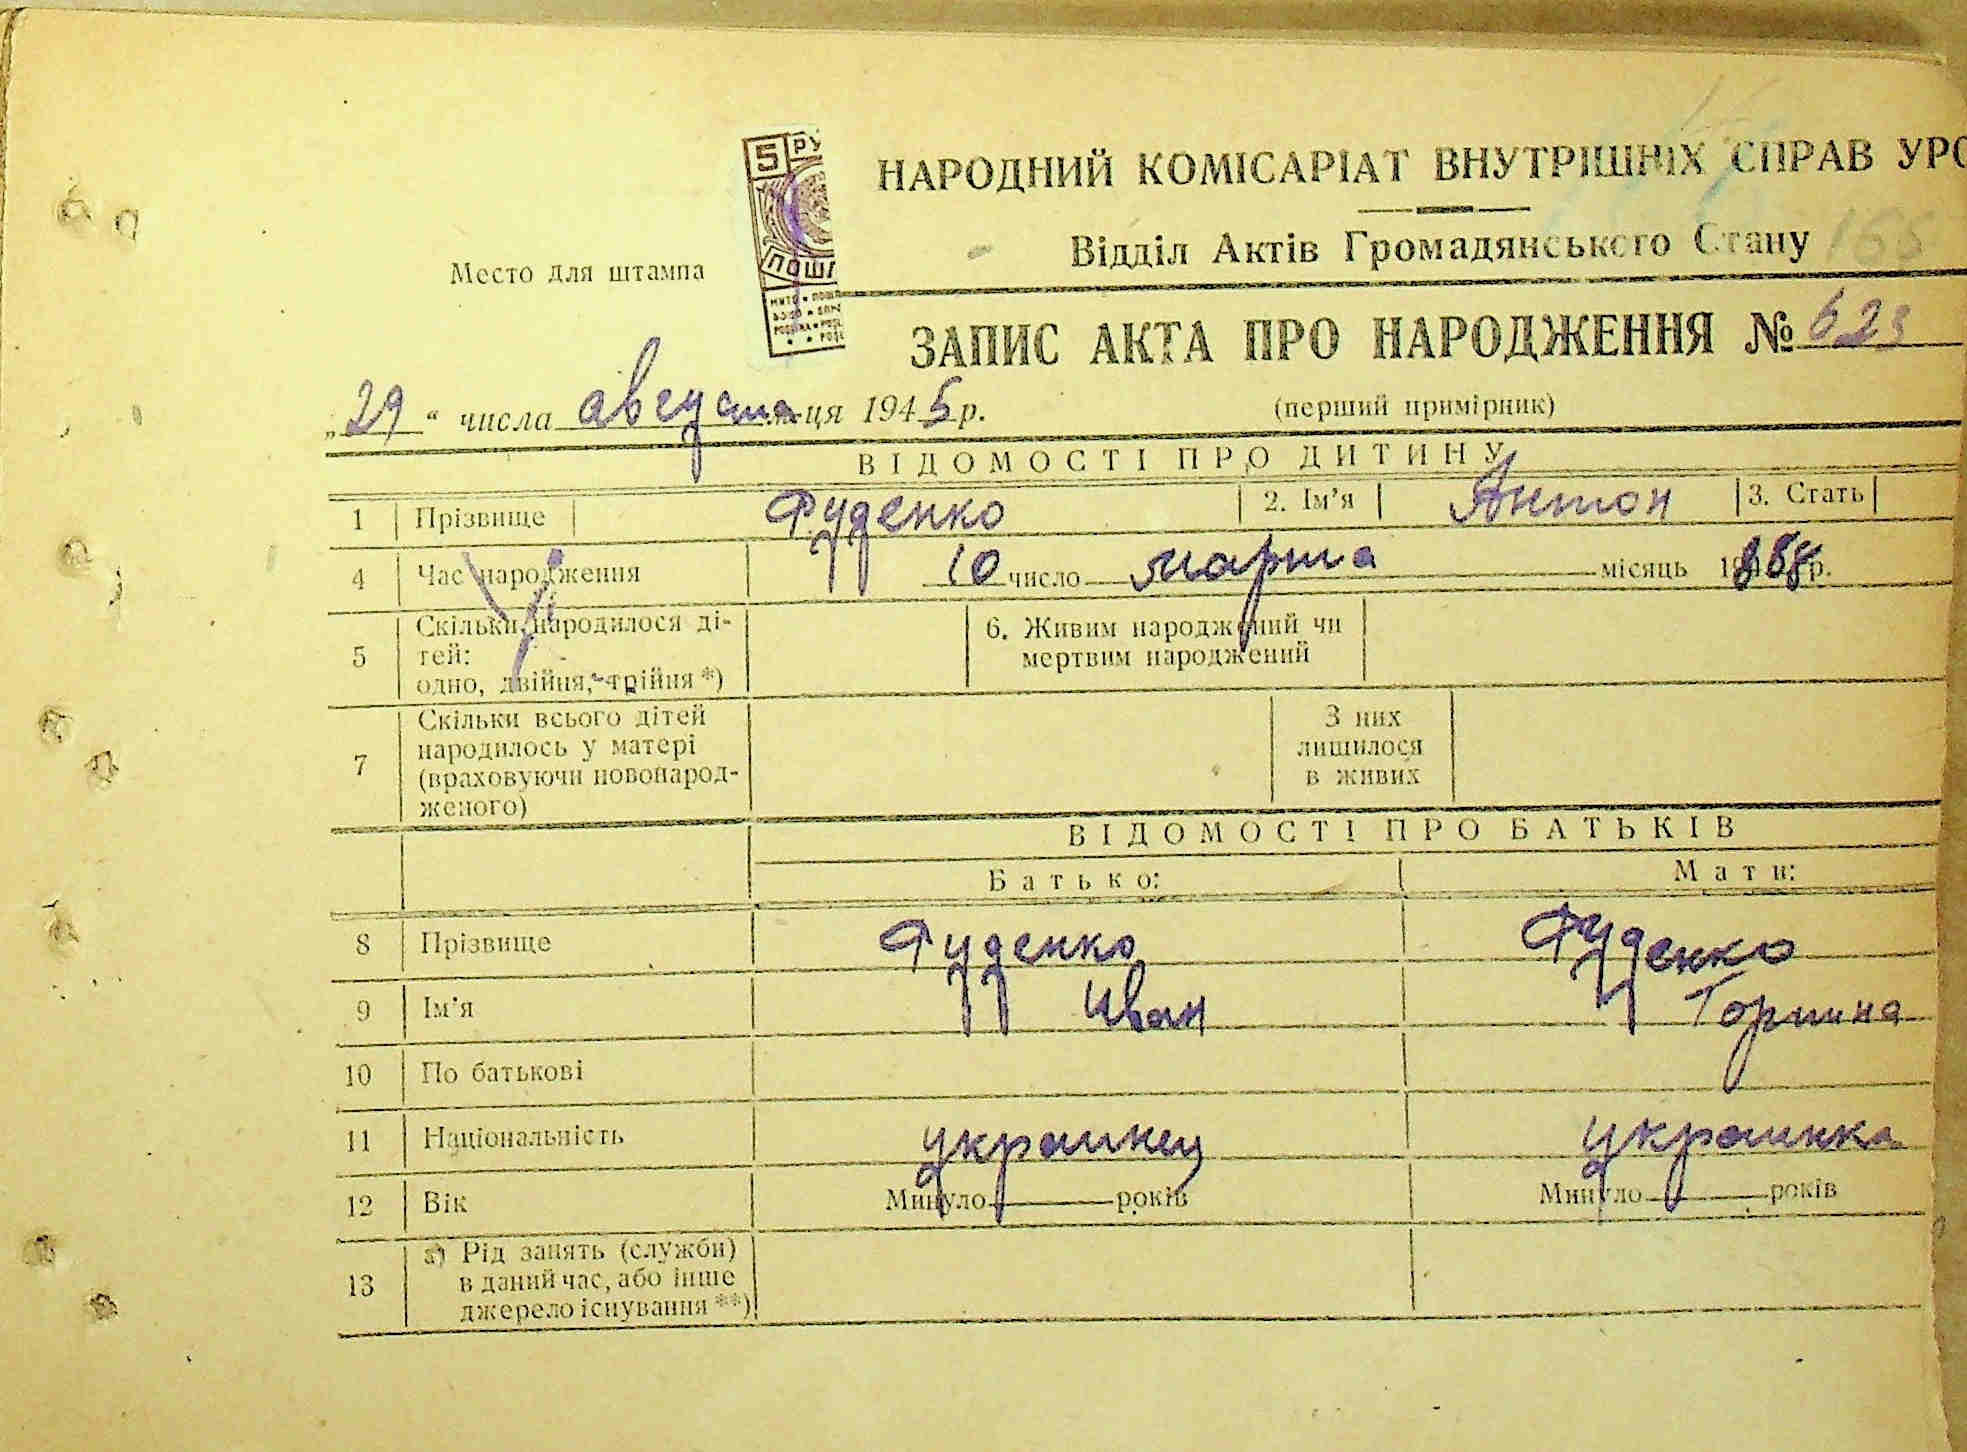 5 РУ
ПОШТ
НАРОДНИЙ КОМІСАРІАТ ВНУТРІШНІХ СПРАВ УРС
Відділ Актів Громадянського Стану 155
Место для штампа
ЗАПИС АКТА ПРО НАРОДЖЕННЯ № 623
„29“ числа августа ця 1945 р.
(перший примірник)
ВІДОМОСТІ ПРО ДИТИНУ
1 Прізвище Фуденко 2. Ім'я Антон 3. Стать
4 Час народження 10 число марта місяць 1888 р.
5 Скільки народилося ді-
тей:
одно, двійня, трійня *)
6. Живим народжений чи
мертвим народжений
7 Скільки всього дітей
народилось у матері
(враховуючи новонарод-
женого)
З них
лишилося
в живих
ВІДОМОСТІ ПРО БАТЬКІВ
Батько: Мати:
8 Прізвище Фуденко Фуденко
9 Ім'я Иван Горпина
10 По батькові
11 Національність украинец украинка
12 Вік Минуло років Минуло років
13 а) Рід занять (служби)
в даний час, або інше
джерело існування **)